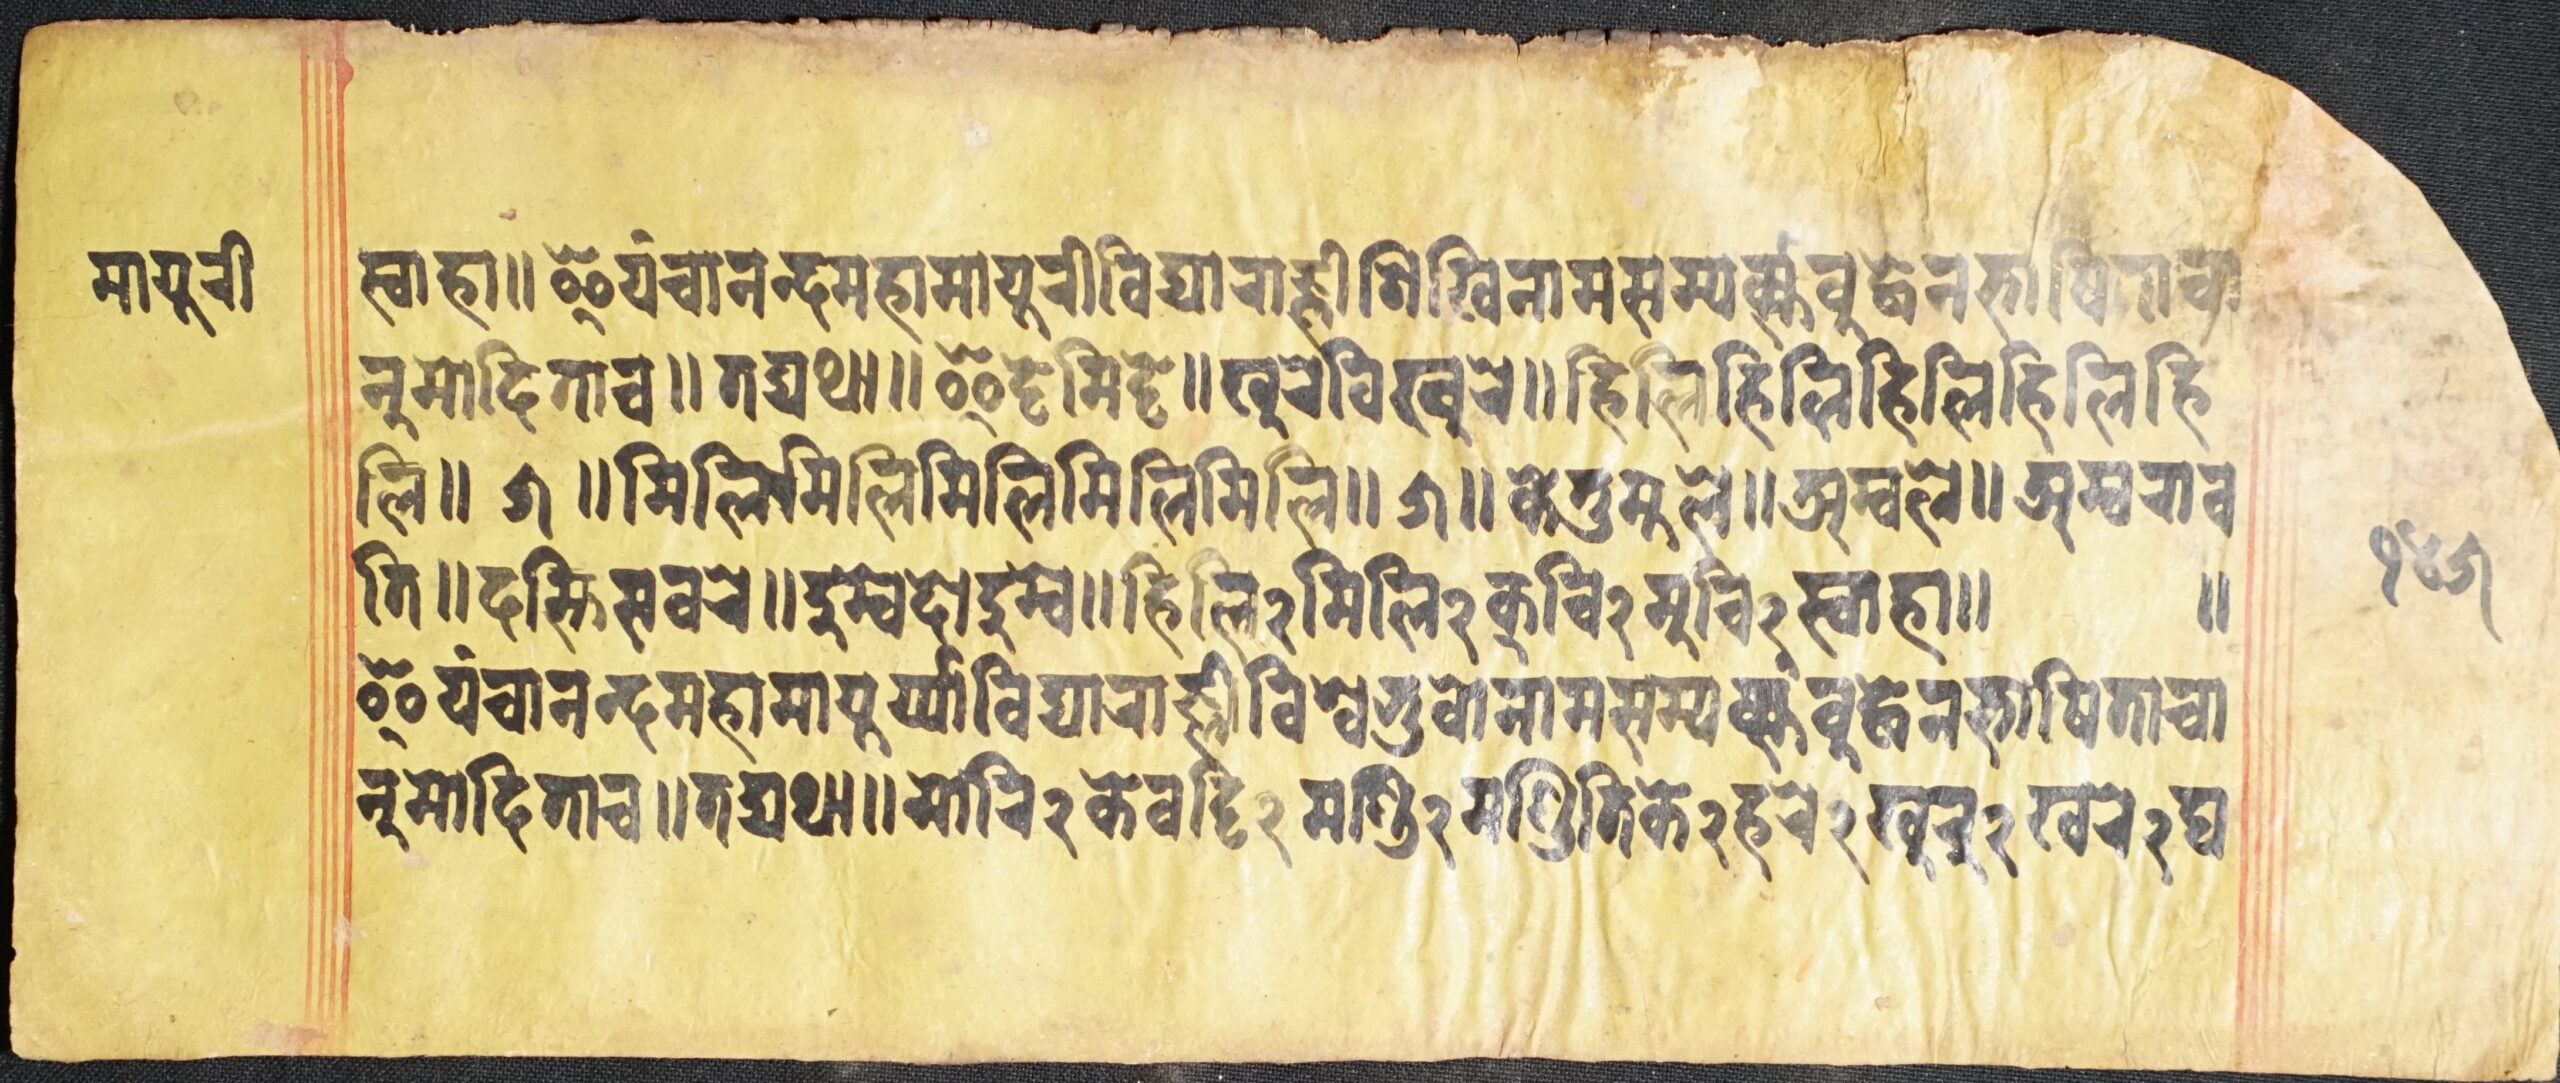 मायुरी
स्वाहा॥ ॐ यंचानन्दमहामायुरीविद्याराज्ञीशिखिनामसम्यक्संबुद्धेनभाषिताचा
नुमोदिताच॥ तद्यथा॥ ॐ इट्टेमिट्टे॥ खुरेविखुरे॥ हिलिहिलिहिलिहिलिहि
लि॥ ५ ॥ मिलिमिलिमिलिमिलिमिलि॥ ५॥ केतुमुले॥ अम्बले॥ अम्बराव
ति॥ दुम्बेदोदुम्बे॥ हिलि२मिलि२कुचि२मुचि२स्वाहा॥ ॥
ॐ यंचानन्दमहामायुर्य्याविद्याराज्ञीविश्वभुवोनामसम्यक्संबुद्धेनभाषिताचा
नुमोदिताच॥ तद्यथा॥ मोरि२केवट्टि२मण्डि२मण्डितिके२हरे२खुरु२खरे२घ